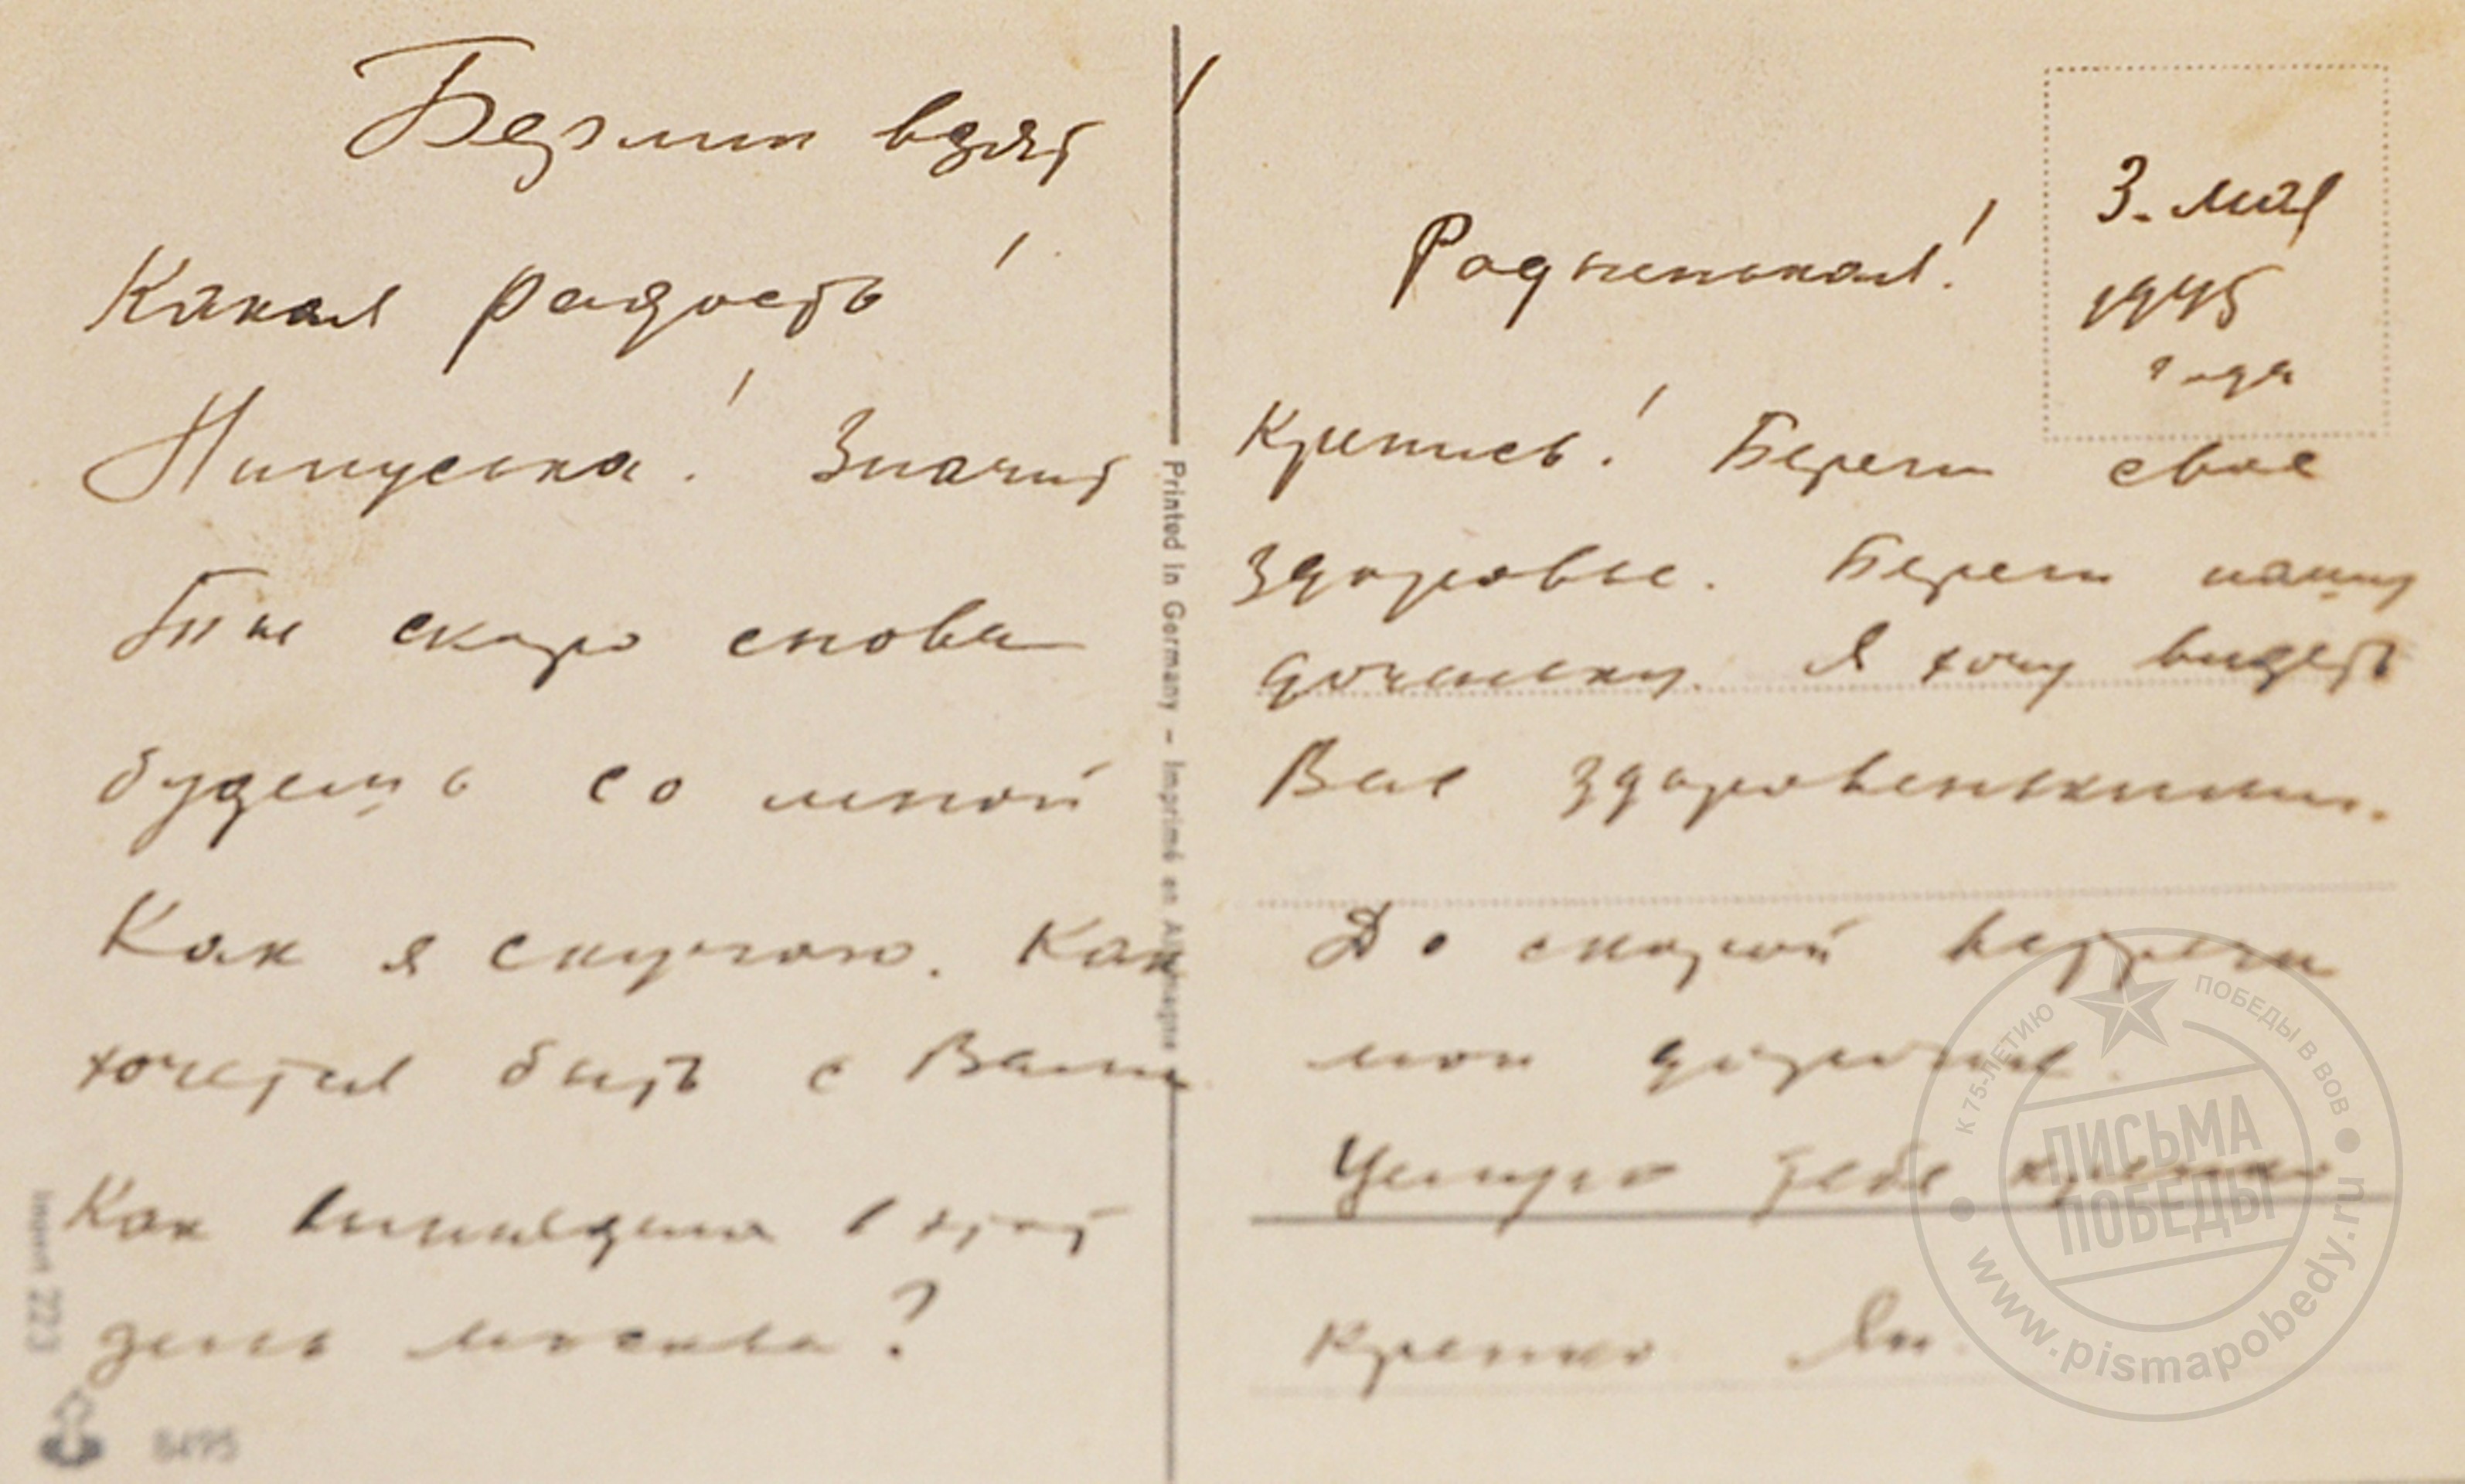 Берлин взят!
Какая радость!
Нинуська! Значит
Ты скоро снова
будешь со мной
Как я скучаю. Как
хочется быть с Вами
Как выглядит в этот
день москва?
3. мая
1945
года
Родненькая!
Крепись! Береги свое
здоровье. Береги нашу
доченьку. Я хочу видеть
Вас здоровенькими.
До скорой встречи
мои дорогие.
Целую тебя крепко
крепко Ян
Printed in Germany – Imprimé en Allemagne
223
8495
К 75-ЛЕТИЮ ПОБЕДЫ В ВОВ
ПИСЬМА
ПОБЕДЫ
www.pismapobedy.ru